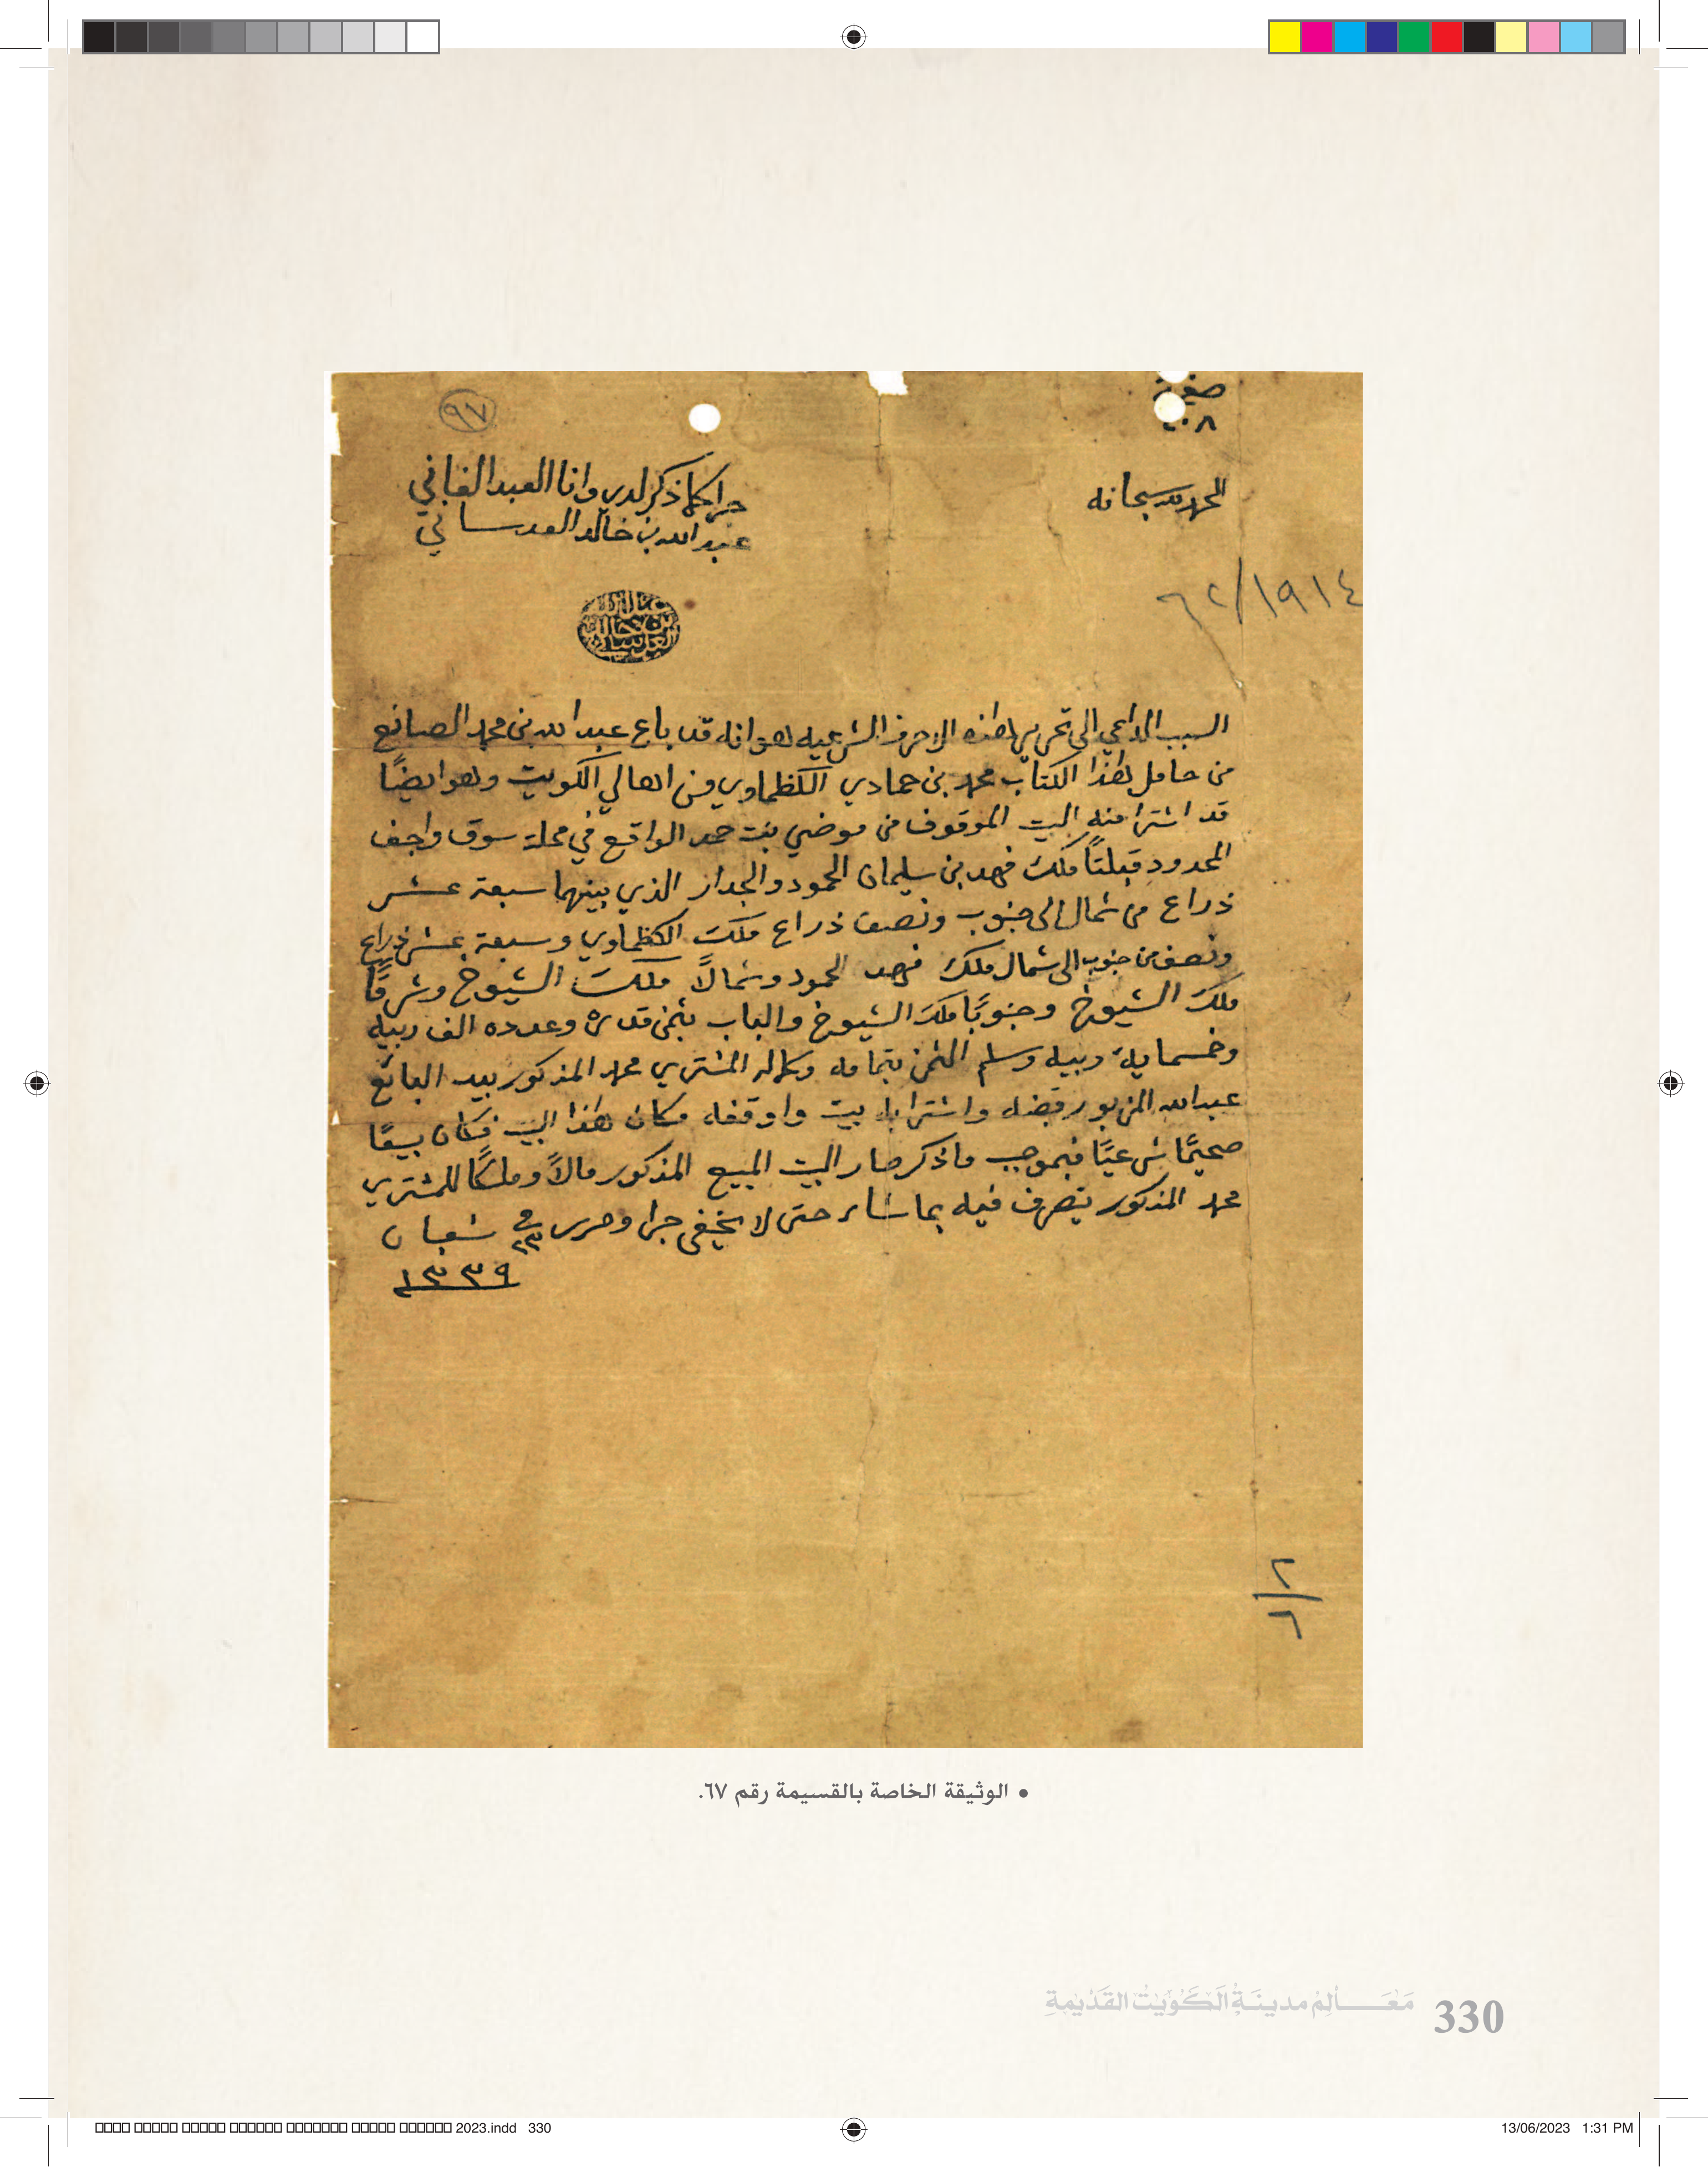 صفحة
٢٠٨
٩٧
الحمد لله سبحانه
جرا كما ذكر لدي وانا العبد الفاني
عبدالله بن خالد العدساني
٦٢/١٩١٤
عبدالله
بن خالد
العدساني
السبب الداعي الى تحرير هذه الاحرف الشرعيه هو انه قد باع عبدالله بن محمد الصانع
من حامل هذا الكتاب محمد بن حمادي الكظماوي من اهالي الكويت وهو ايضًا
قد اشترا منه البيت الموقوف من موضي بنت حمد الواقع في محلة سوق واجف
المحدود قبلتًا ملك فهد بن سليمان الحمود والجدار الذي بينهما سبعة عشر
ذراع من شمال الى جنوب ونصف ذراع ملك الكظماوي وسبعة عشر ذراع
ونصف من جنوب الى شمال ملك فهد الحمود وشمالاً ملك الشيوخ وشرقًا
ملك الشيوخ وجنوبًا ملك الشيوخ والباب بثمن قدره وعدده الف ربيه
وخمسماية ربيه وسلم الثمن بتمامه وكماله المشتري محمد المذكور بيد البائع
عبدالله المزبور قبضه واشترا به بيت واوقفه مكان هذا البيت فكان بيعًا
صحيحًا شرعيًا فبموجب ماذكر صار البيت المبيع المذكور مالاً وملكًا للمشتري
محمد المذكور يتصرف فيه بما شاء حتى لا يخفى جرا وحرر في ٢٣ شعبان
١٣٣٩
٢/٦
• الوثيقة الخاصة بالقسيمة رقم ٦٧.
مَعَالِمُ مدينَةِ الكُوَيتِ القَدِيمةِ
330
2023.indd 330
13/06/2023 1:31 PM